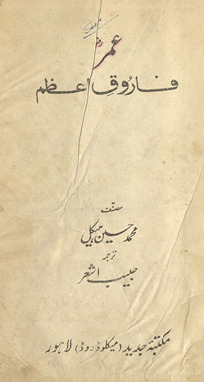 عمرؓ
فاروقِ اعظم
مصنف
محمد حسین ہیکل
ترجمہ
حبیب اشعر
مکتبۂ جدید (میکلوڈ روڈ) لاہور